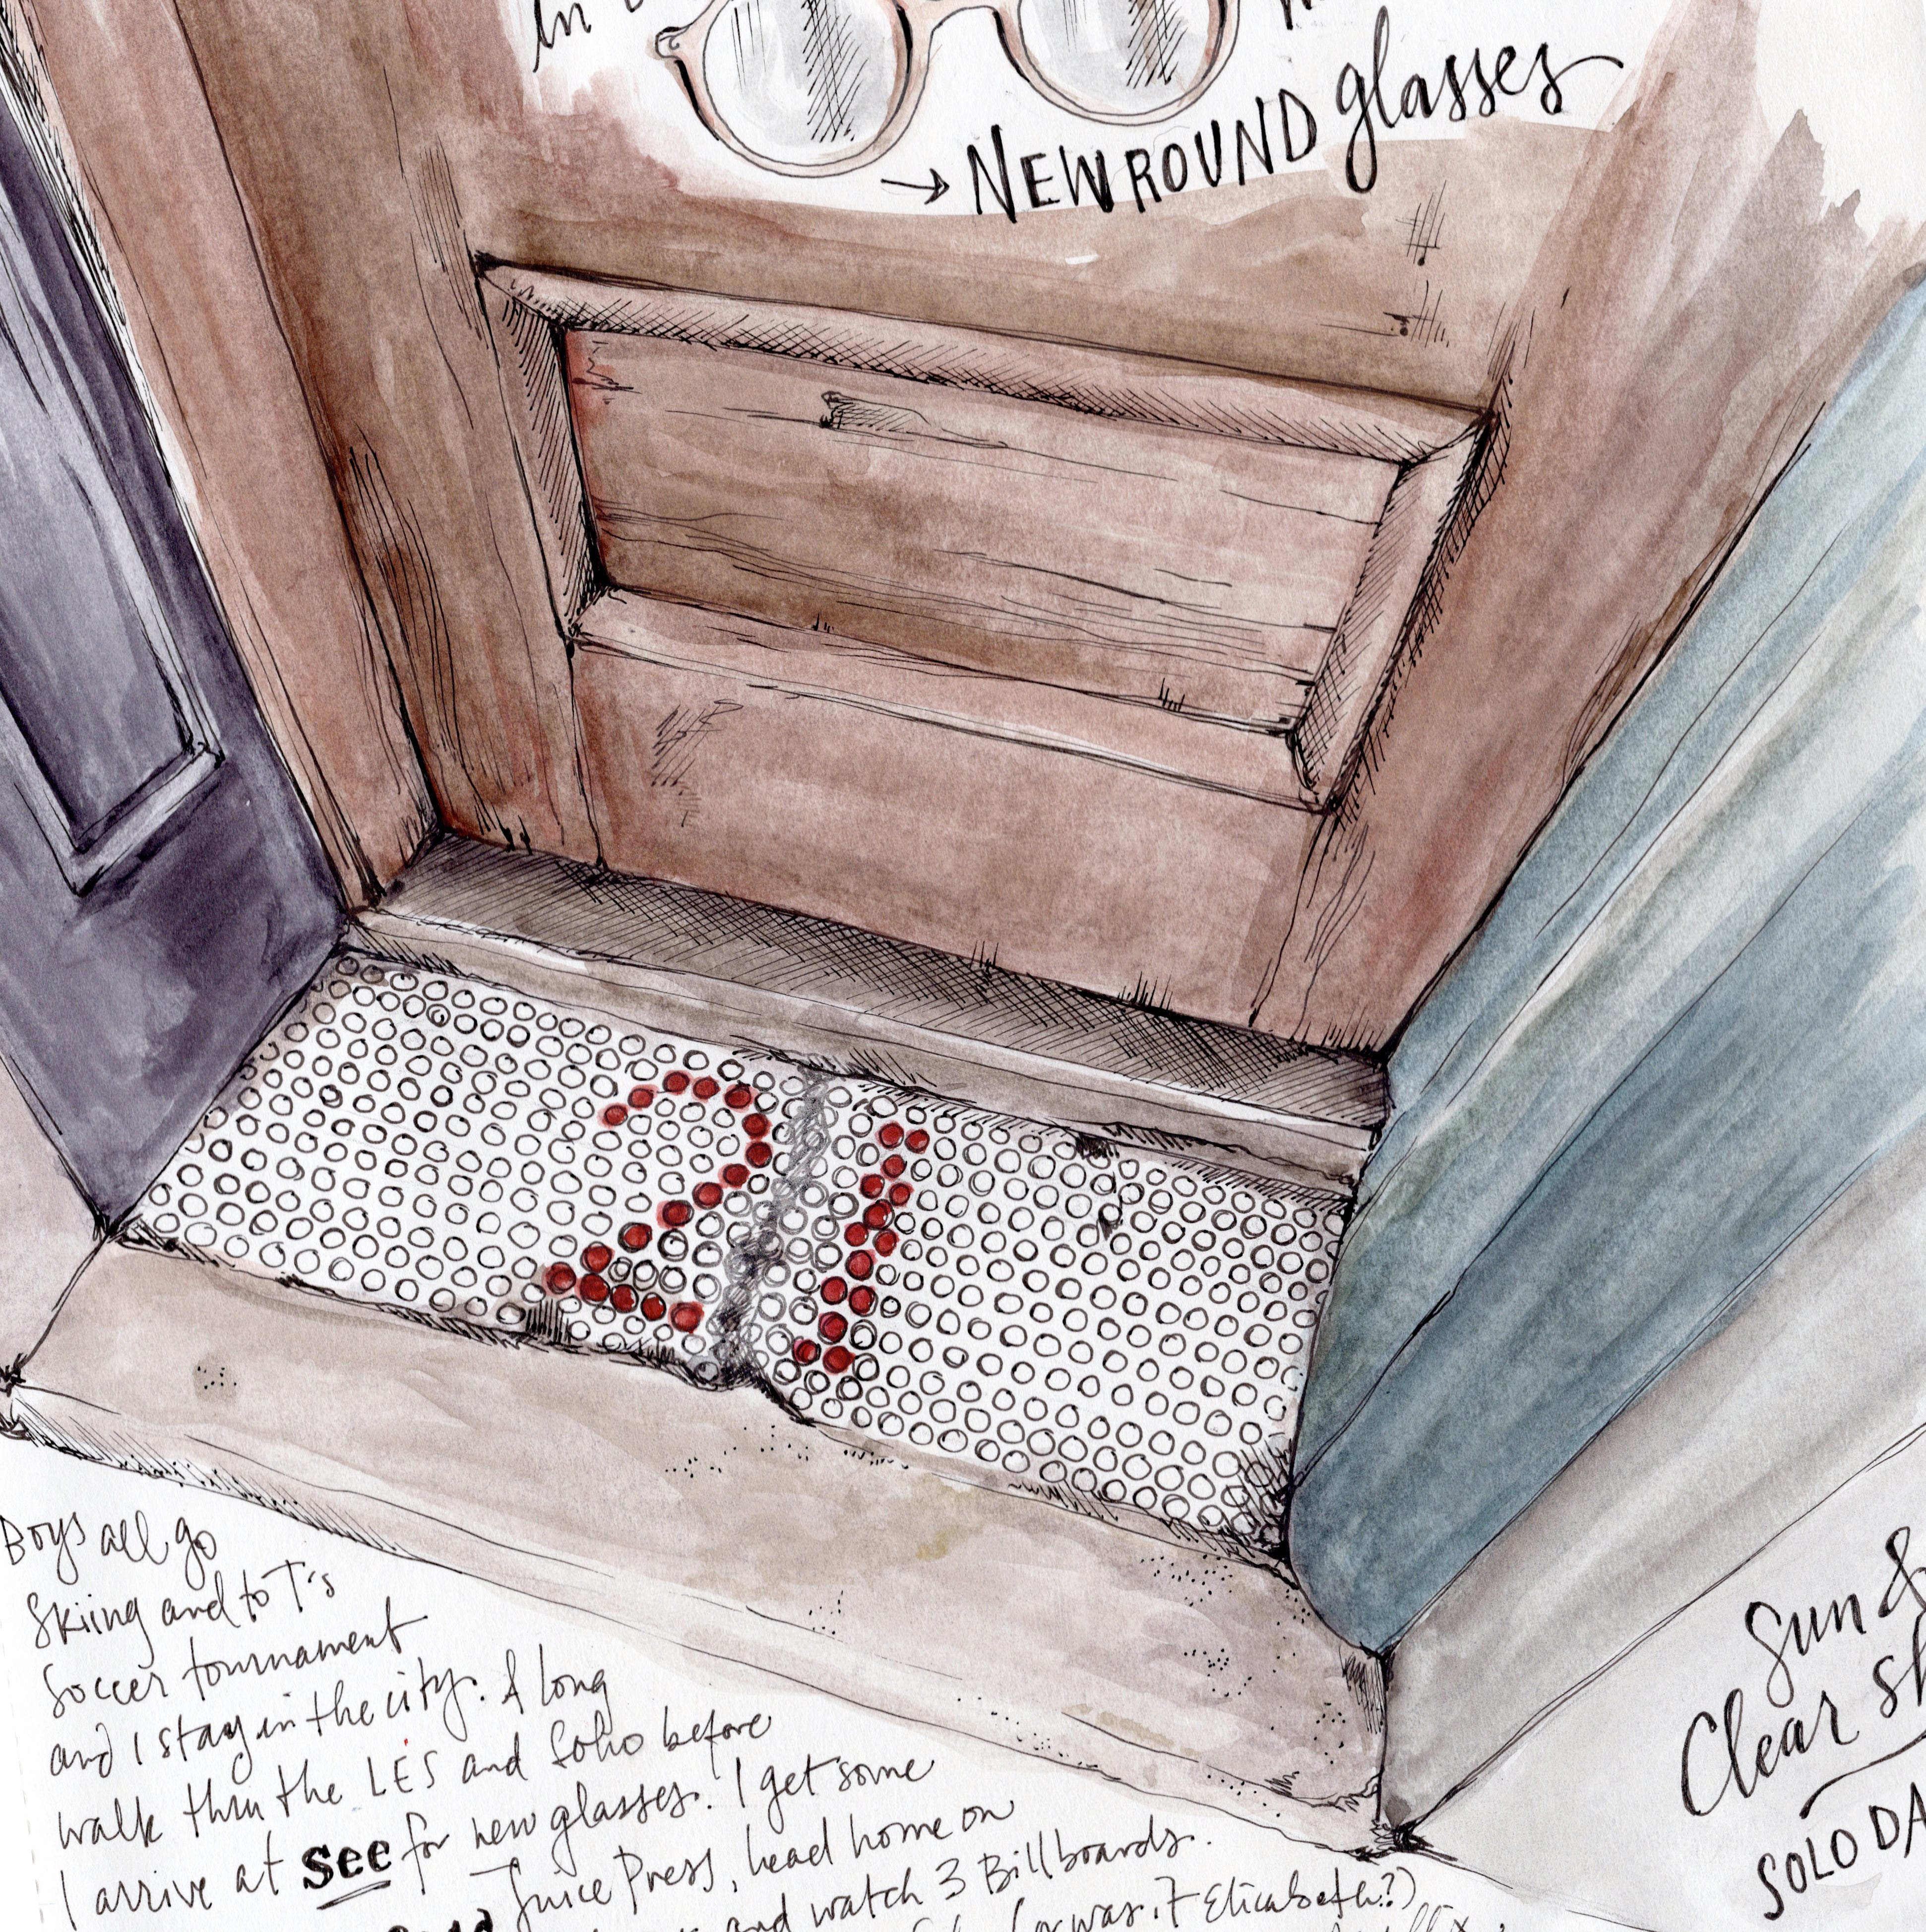 In
→ NEW ROUND glasses
21
Boys all go
skiing and to T's
soccer tournament
and I stay in the city. A long
walk thru the LES and Soho before
I arrive at see for new glasses. I get some
Juice Press, head home on
and watch 3 Billboards.
(or was it Elizabeth?)
Sun &
Clear
SOLO